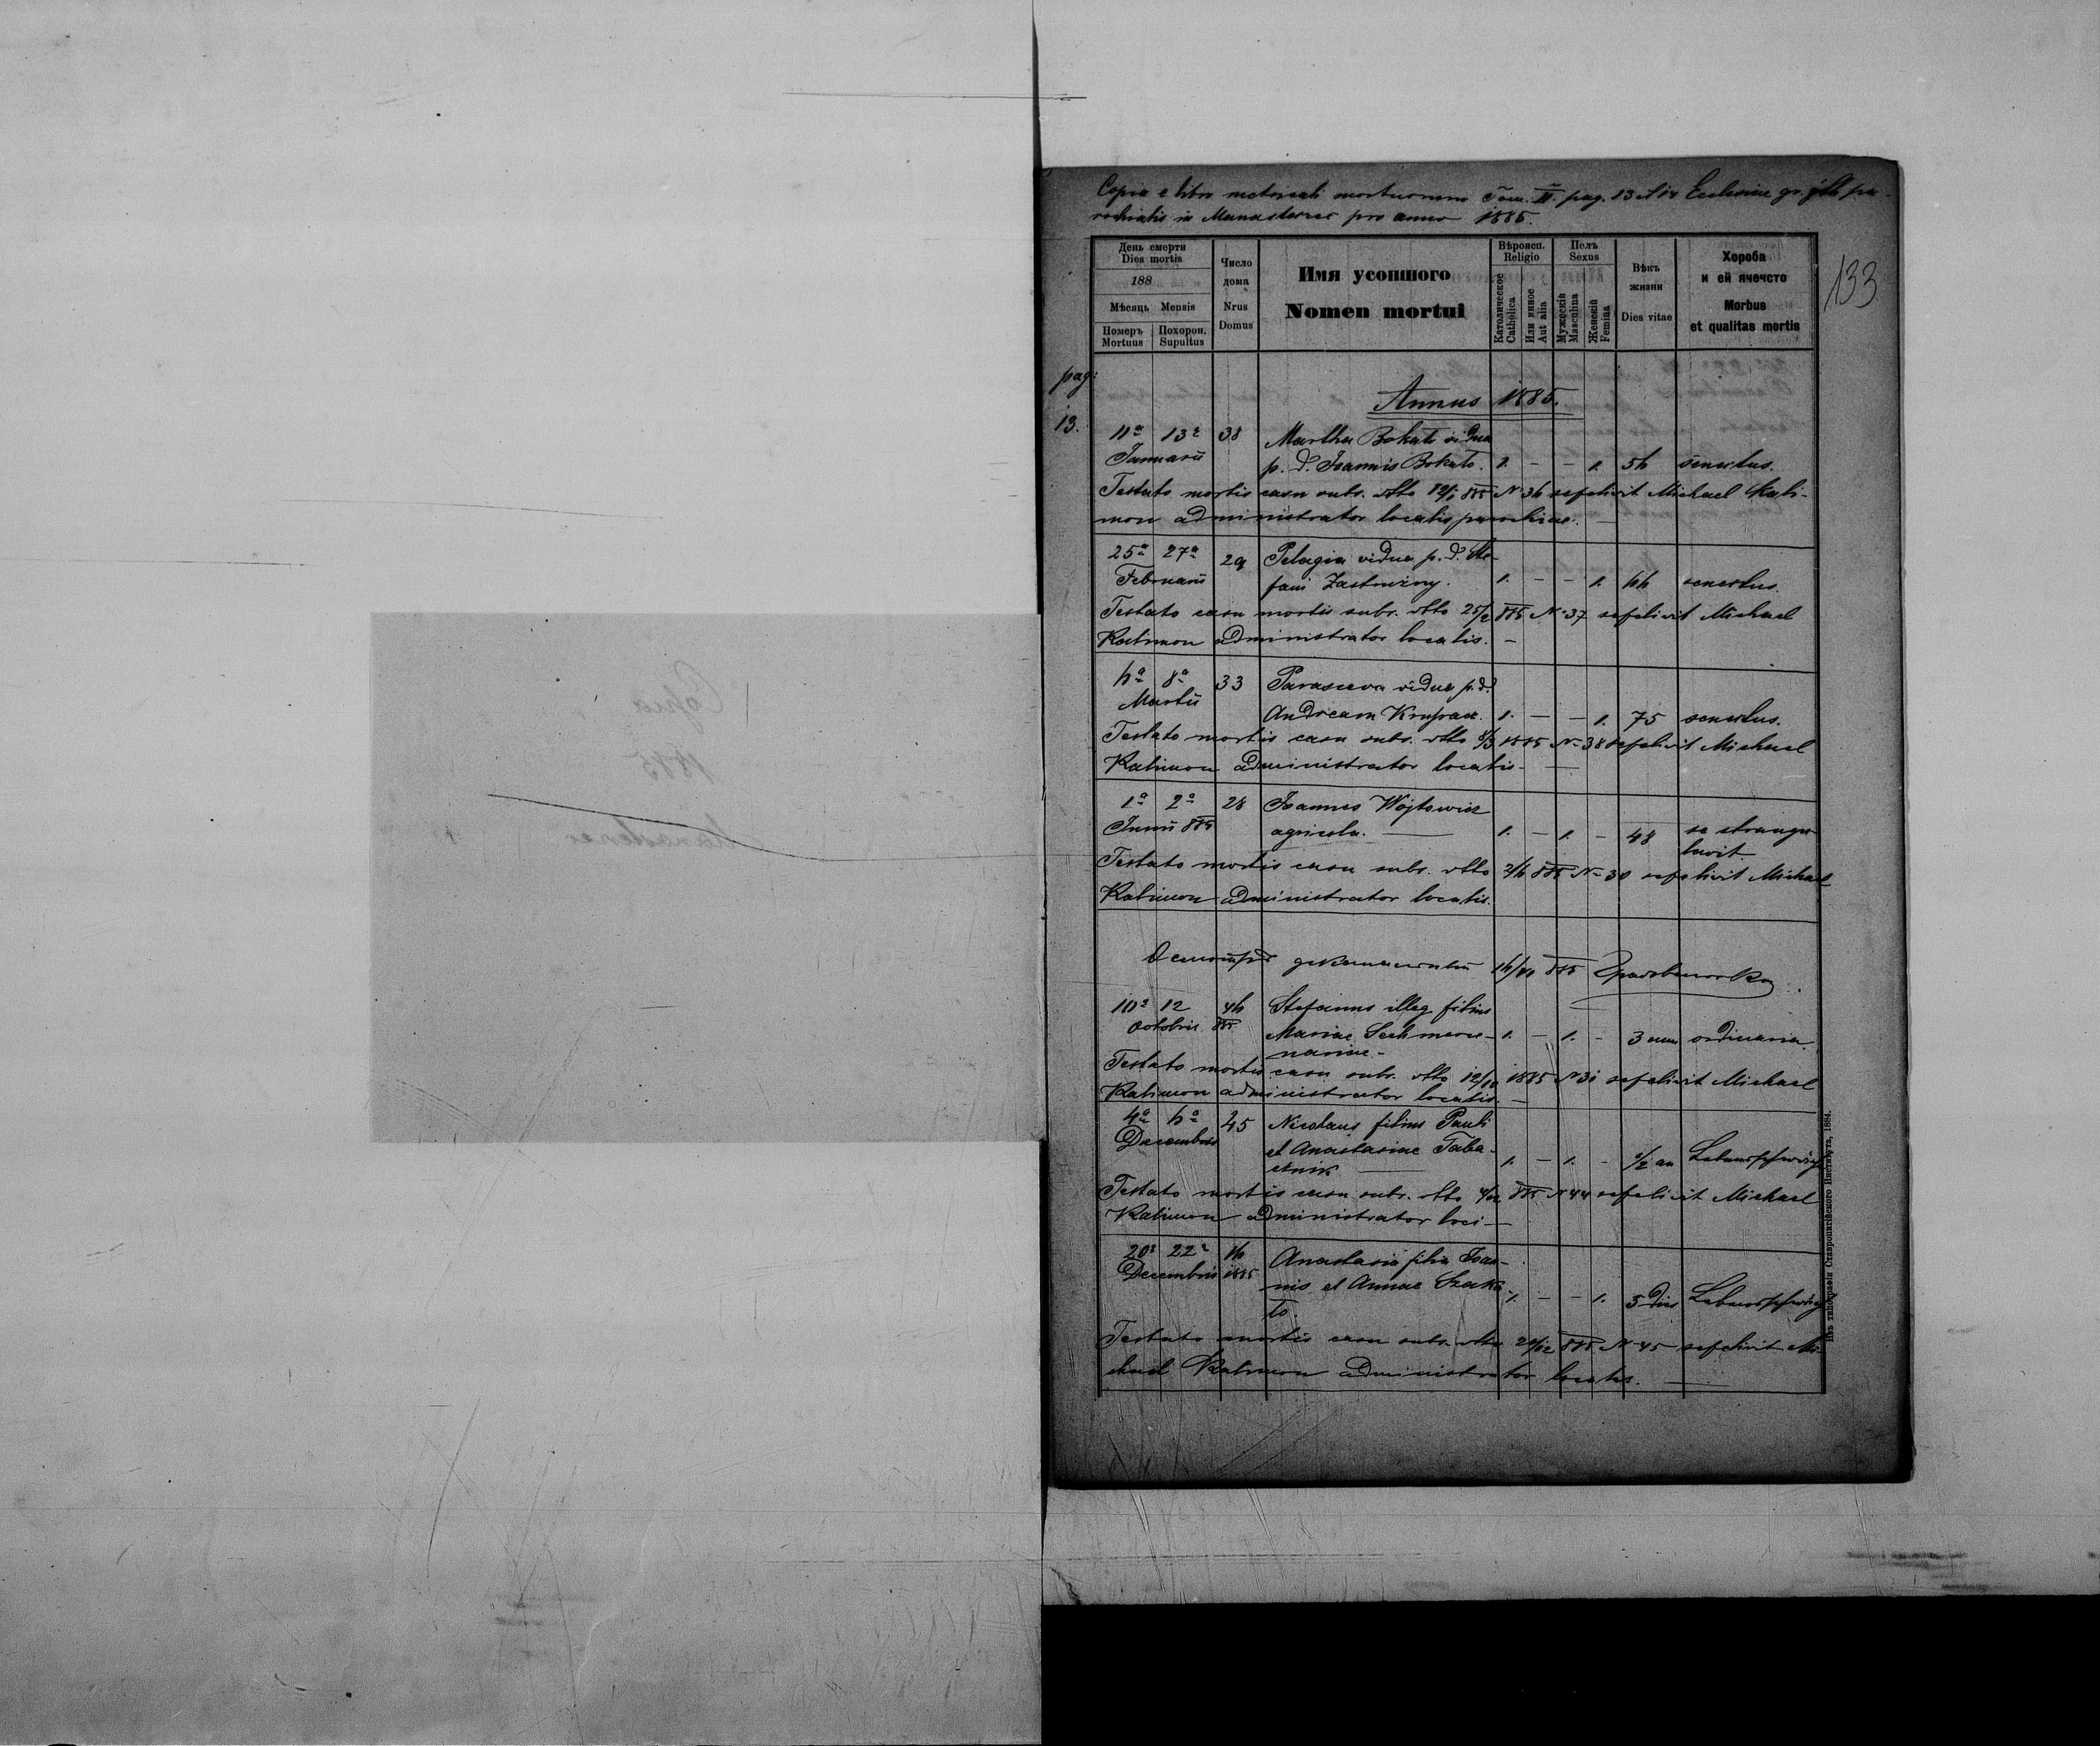 Copia e libro metricali mortuorum Tom. II. pag. 13 et 14 Ecclesiae gr. cath. pa-
rochialis in Manasterzec pro anno 1885.
133
День смерти
Dies mortis
188
Мѣсяць Mensis
Номеръ
Mortuus
Похорон.
Supultus
Число
дома
Nrus
Domus
Имя усопшого
Nomen mortui
Вѣроисп.
Religio
Католическое
Catholica
Или инное
Aut alia
Полъ
Sexus
Мужескій
Masculina
Женскій
Femina
Вѣкъ
жизни
Dies vitae
Хороба
и ей ячечсто
Morbus
et qualitas mortis
pag:
13.
Annus 1885.
11a 13a 38 Martha Bokato vidua
Januarii p. d. Joannis Bokato. 1. - - 1. 56 senectus.
Testato mortis casu subs. dtto 12/1 885 N 36 sepelivit Michael Kali-
mon administrator localis parochiae. -
25a 27a 29 Pelagia vidua p. d. Ste-
Februarii fani Zastawny. 1. - - 1. 66 senectus.
Testato casu mortis subs. dtto 25/2 885 N 37 sepelivit Michael
Kalimon administrator localis. -
6a 8a 33 Parasceva vidua p. d.
Martii Andream Krupacz. 1. - - 1. 75 senectus.
Testato mortis casu subs. dtto 8/3 1885 N 38 sepelivit Michael
Kalimon administrator localis. -
1a 2a 28 Joannes Wojtowicz
Junii 885 agricola. - 1. - 1. - 48 se strangu-
lavit.
Testato mortis casu subs. dtto 2/6 885 N 30 sepelivit Michael
Kalimon administrator localis.
16/10 885
10a 12 46 Stefanus illeg. filius
Octobris 885 Mariae 1. - 1. - 3 ordinaria.
Testato mortis casu subs. dtto 12/10 1885 N 31 sepelivit Michael
Kalimon administrator localis. -
4a 6a 45 Nicolaus filius Pauli
Decembris et Anastasiae Taba-
cznik - 1. - 1. - 1/2 an Lebensschwäche
Testato mortis casu subs. dtto 4/12 885 N 44 sepelivit Michael
Kalimon administrator loci -
20a 22a 16 Anastasia filia Joan-
Decembris 1885 nis et Annae
1. - - 1. 5 dies Lebensschwäche
Testato mortis casu subs. dtto 885 N 45 sepelivit Mi-
chael Kalimon administrator localis. -
Изъ типографіи Ставропигійского Института, 1884.
Copia
1885
Manasterzec